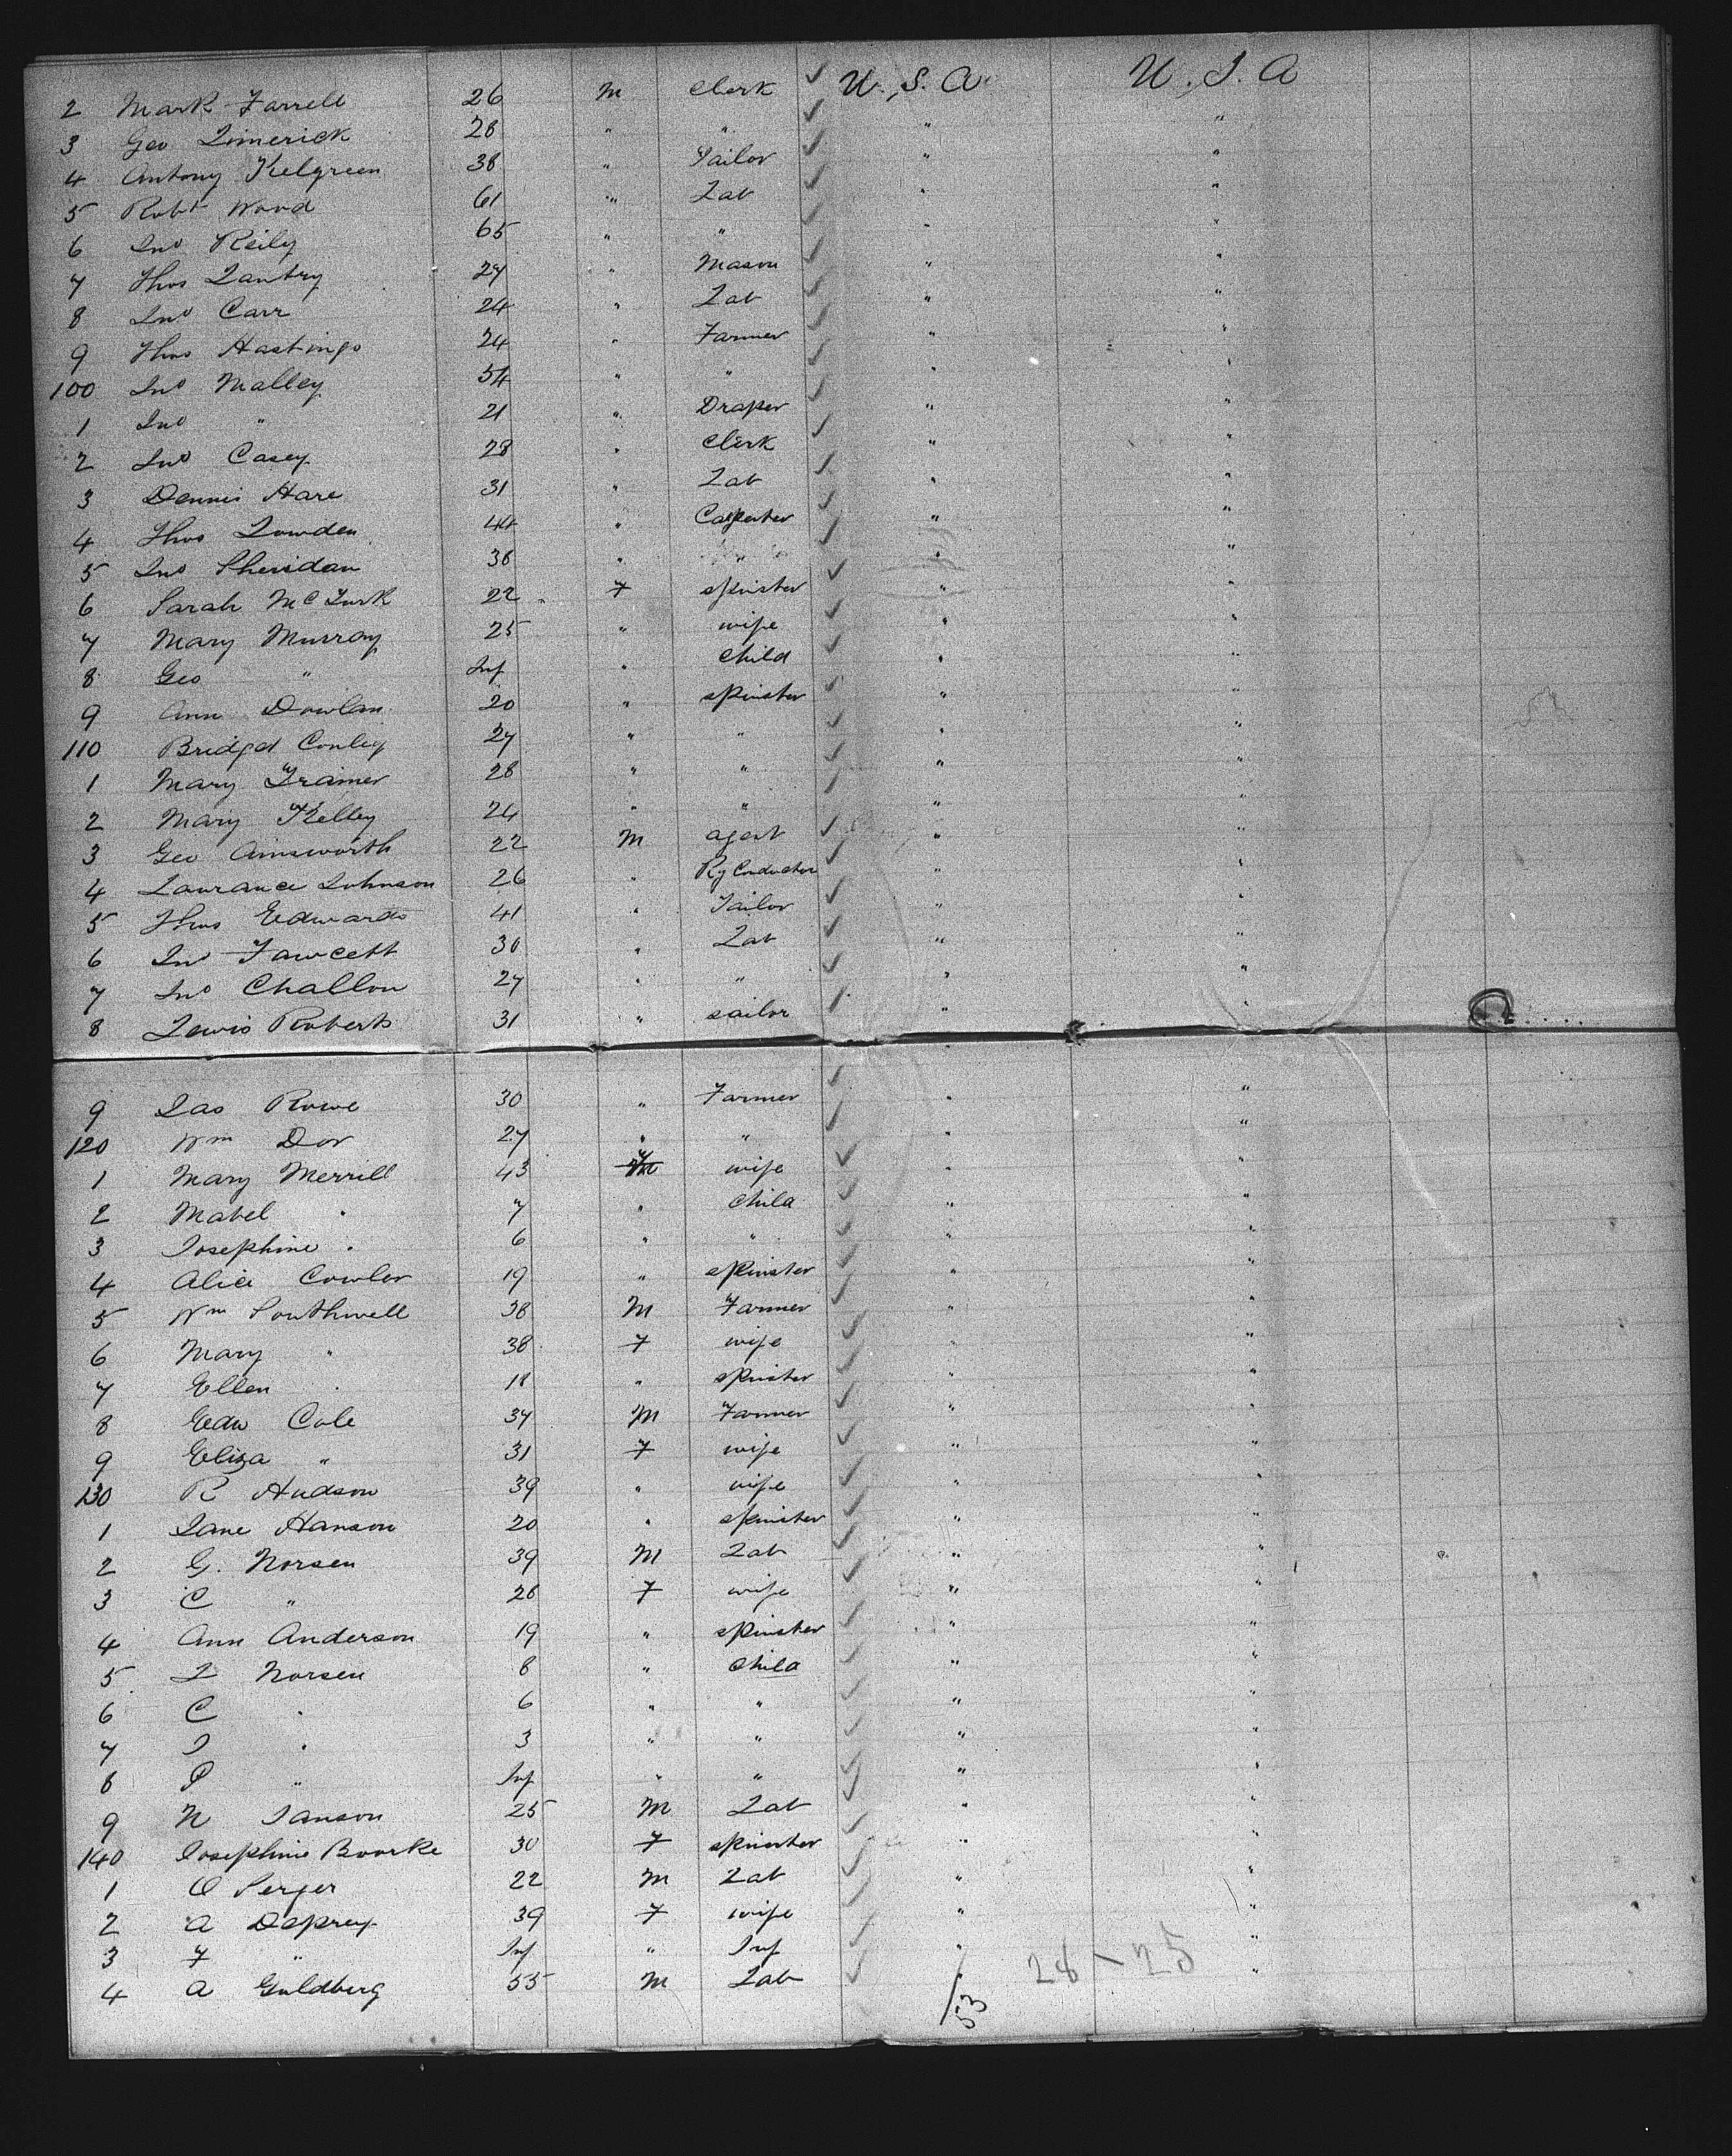 2 Mark Farrell 26 M Clerk U.S.A. U.S.A
3 Geo Limerick 28 " " " "
4 Antony Kelgreen 38 " Tailor " "
5 Robt Wood 61 " Lab " "
6 Jno Reily 65 " " " "
7 Thos Lantry 27 " Mason " "
8 Jno Carr 24 " Lab " "
9 Thos Hastings 24 " Farmer " "
100 Jno Malley 54 " " " "
1 Jno " 21 " Draper " "
2 Jno Casey 28 " Clerk " "
3 Dennis Hare 31 " Lab " "
4 Thos Lowden 44 " Carpenter " "
5 Jno Sheridan 38 " " " "
6 Sarah McTurk 22 F spinster " "
7 Mary Murray 25 " wife " "
8 Geo " Inf " Child " "
9 Ann Dowlan 20 " spinster " "
110 Bridget Conley 27 " " " "
1 Mary Trainer 28 " " " "
2 Mary Kelley 24 " " " "
3 Geo Ainsworth 22 M agent " "
4 Laurance Johnson 26 " Ry Conductor " "
5 Thos Edwards 41 " Tailor " "
6 Jno Fawcett 30 " Lab " "
7 Jno Challon 27 " " " "
8 Lewis Roberts 31 " sailor " "
9 Jas Rowe 30 " Farmer " "
120 Wm Dor 27 " " " "
1 Mary Merrill 43 F wife " "
2 Mabel " 7 " Child " "
3 Josephine " 6 " " " "
4 Alice Cowler 19 " spinster " "
5 Wm Southwell 38 M Farmer " "
6 Mary " 38 F wife " "
7 Ellen " 18 " spinster " "
8 Edw Cole 34 M Farmer " "
9 Eliza " 31 F wife " "
130 R Hudson 39 " wife " "
1 Jane Hanson 20 " spinster " "
2 G. Norsen 39 M Lab " "
3 C " 28 F wife " "
4 Ann Anderson 19 " spinster " "
5 L Norsen 8 " Child " "
6 C " 6 " " " "
7 J " 3 " " " "
8 P " Inf " " " "
9 N Janson 25 M Lab " "
140 Josephine Boorke 30 F spinster " "
1 O Perger 22 M Lab " "
2 A Desprey 39 F wife " "
3 F " Inf " Inf " "
4 A Guldberg 55 M Lab " "
28-25
53